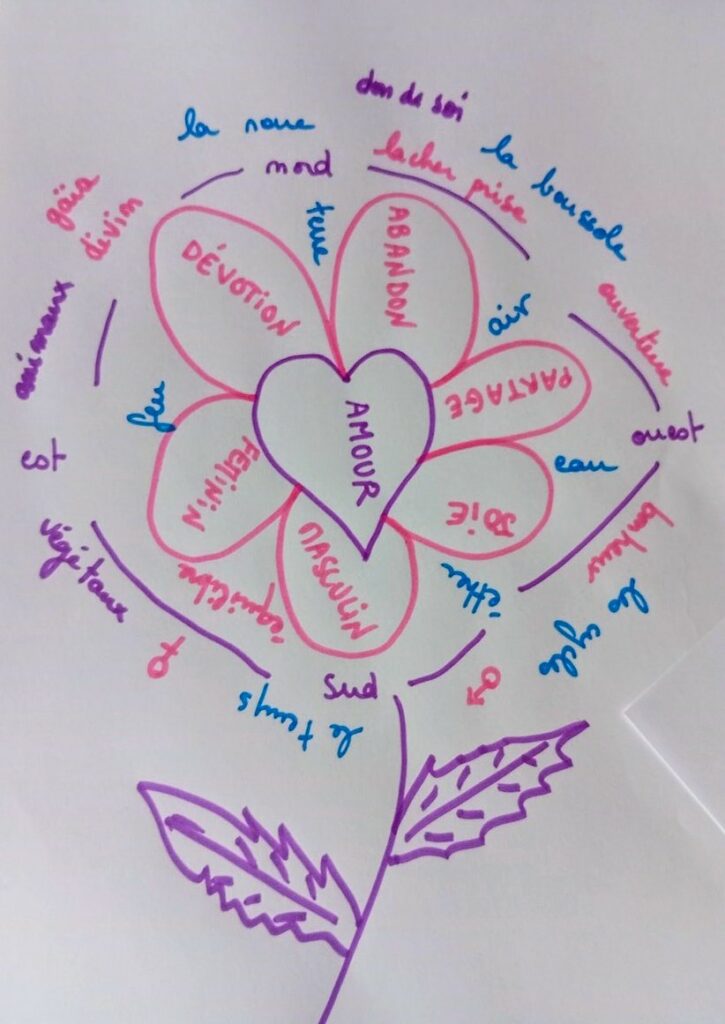 don de soi
la roue
la boussole
nord
lacher prise
gaïa
divin
terre
ABANDON
DÉVOTION
air
ouverture
animaux
PARTAGE
AMOUR
feu
ouest
est
eau
FEMININ
JOIE
bonheur
MASCULIN
végétaux
équilibre
éther
le cycle
♀
♂
sud
le temps